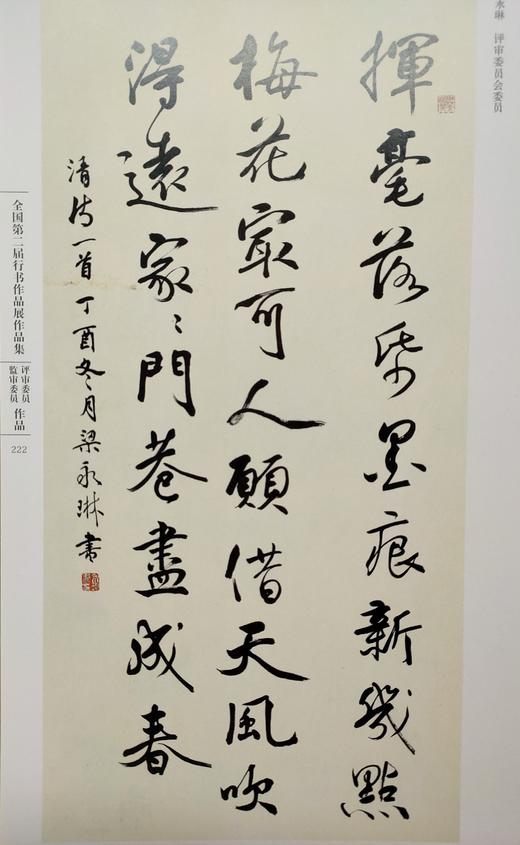 永琳 评审委员会委员
揮毫落帋墨痕新幾點
梅花㝡可人願借天風吹
得遠家〻門巷盡成春
清诗一首 丁酉冬月梁永琳書
全国第二届行书作品展作品集
评审委员
监审委员
作品
222